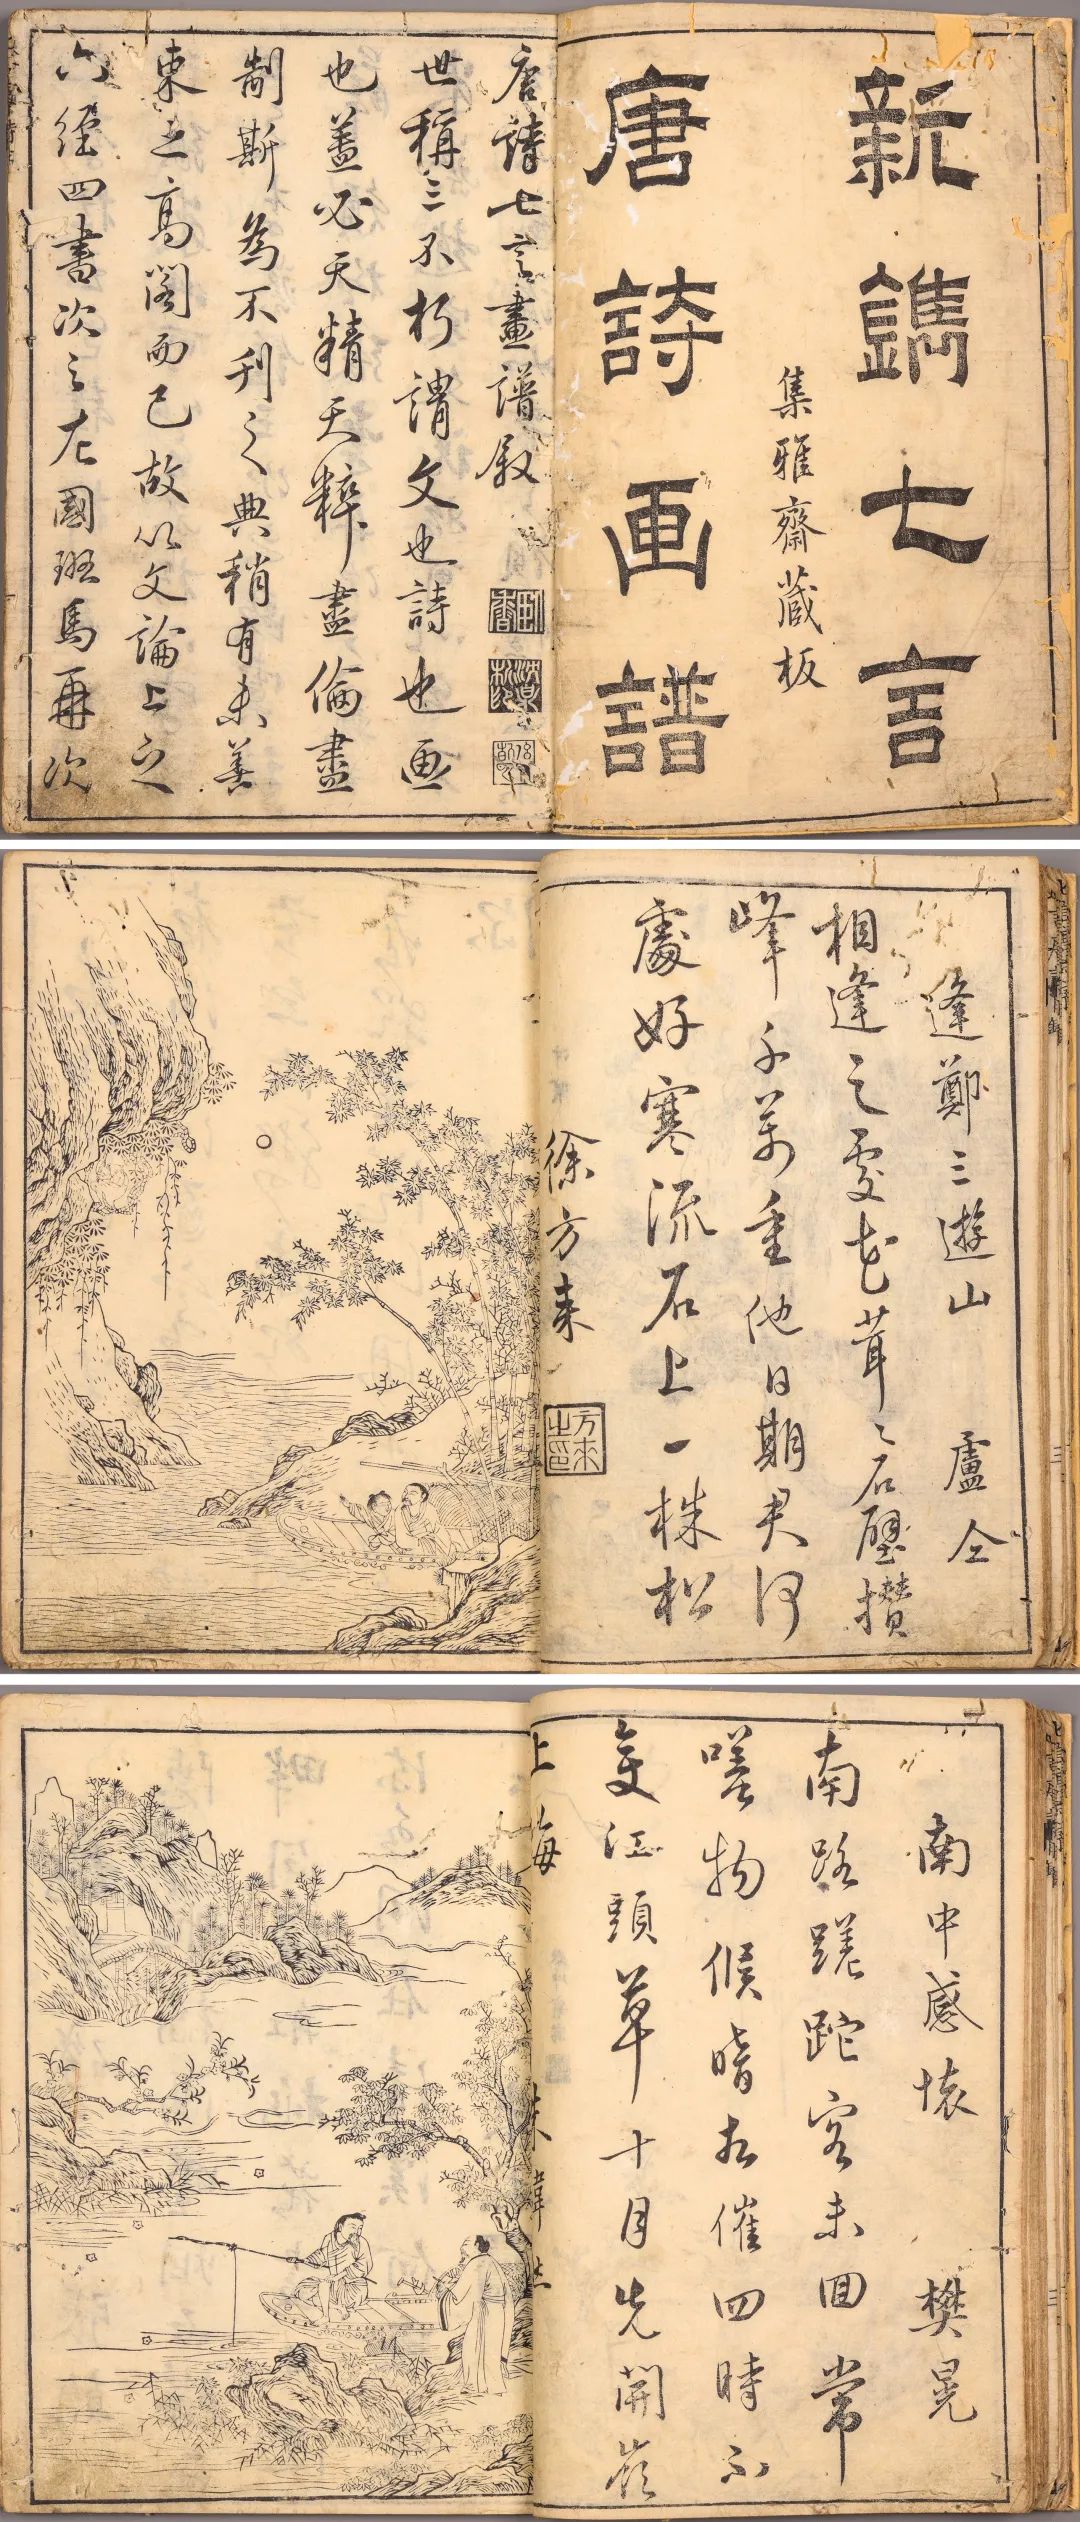 新鐫七言
集雅齋藏板
唐詩画譜
唐詩七言畫譜叙
世稱三不朽謂文也詩也画
也蓋必天精天粹盡倫盡
制斯為不刋之典稍有未善
束之高閣而已故以文論上之
六經四書次之左國班馬再次
逢鄭三遊山 盧仝
相逢之處花茸〻石壁攢
峰千萬重他日期君何
處好寒流石上一株松
徐方来
方来之印
南中感懷 樊晃
南路蹉跎客未回常
嗟物候暗相催四時不
变江頭草十月先開嶺
上梅